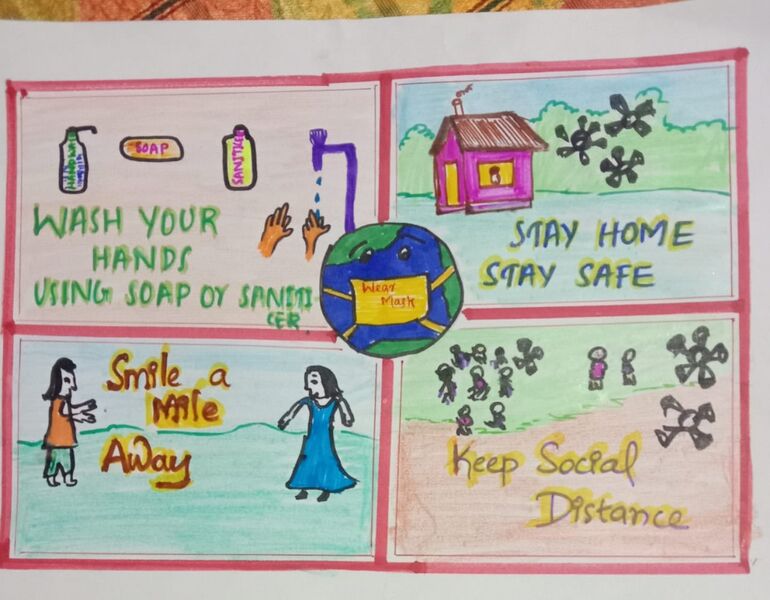 HAND WASH
SOAP
SANITISER
WASH YOUR
HANDS
USING SOAP OY SANITI
CER
STAY HOME
STAY SAFE
Wear
Mask
Smile a
Mile
Away
Keep Social
Distance